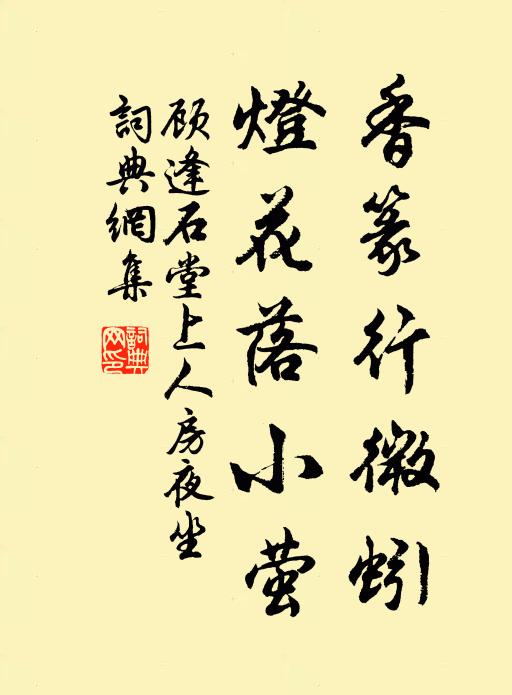 香篆行微蚓
燈花落小萤
顾逢石堂上人房夜坐
詞典網集
詞典网印